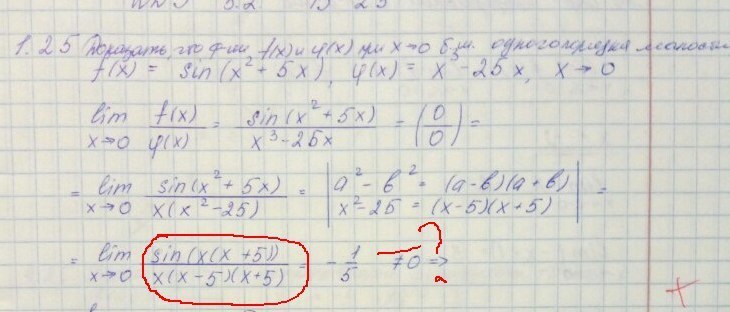 1.25 Доказать, что ф-ии f(x) и φ(x) при x→0 б.м. одного порядка малости
f(x) = sin(x² + 5x), φ(x) = x³ - 25x, x → 0
lim x→0 f(x)/φ(x) = sin(x² + 5x)/(x³ - 25x) = (0/0) =
= lim x→0 sin(x² + 5x)/(x(x² - 25)) = | a² - b² = (a-b)(a+b) x² - 25 = (x-5)(x+5) | =
= lim x→0 sin(x(x+5))/(x(x-5)(x+5)) = - 1/5 ≠0 ⇒ ?